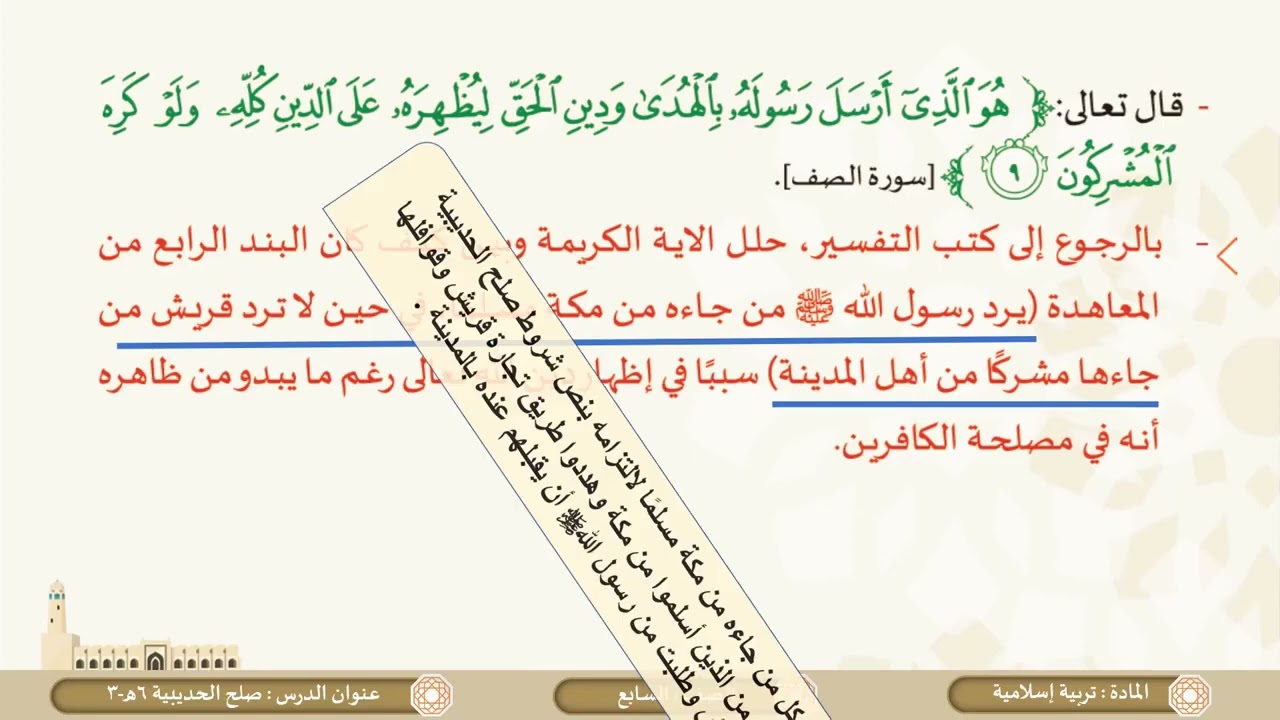 - قال تعالى: ﴿ هُوَ ٱلَّذِىٓ أَرْسَلَ رَسُولَهُۥ بِٱلْهُدَىٰ وَدِينِ ٱلْحَقِّ لِيُظْهِرَهُۥ عَلَى ٱلدِّينِ كُلِّهِۦ وَلَوْ كَرِهَ
ٱلْمُشْرِكُونَ ٩ ﴾ [سورة الصف].
- بالرجوع إلى كتب التفسير، حلل الاية الكريمة كان البند الرابع من
المعاهدة (يرد رسول الله ﷺ من جاءه من مكة في حين لا ترد قريش من
جاءها مشركًا من أهل المدينة) سببًا في تعالى رغم ما يبدو من ظاهره
أنه في مصلحة الكافرين.
كل من جاءه من مكة مسلمًا لالتزامه بنص شروط صلح الحديبية
من الذين أسلموا من مكة وهددوا طريق تجارة قريش وقوافلها
وطلبت من رسول الله ﷺ أن يقبلهم عنده بالمدينة.
المادة : تربية إسلامية
السابع
عنوان الدرس : صلح الحديبية ٦هـ-٣